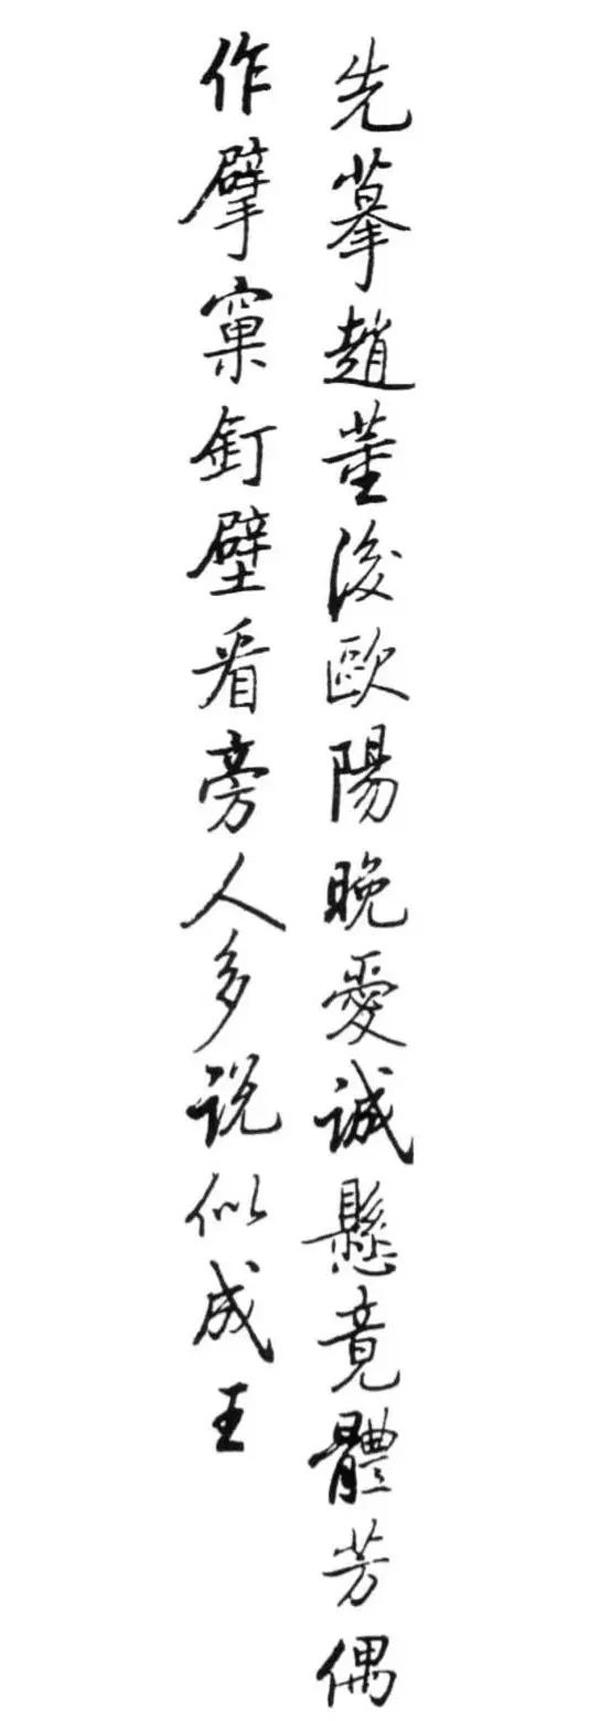 先摹趙董後歐陽晚愛誠懸竟體芳偶
作擘窠釘壁看旁人多说似成王